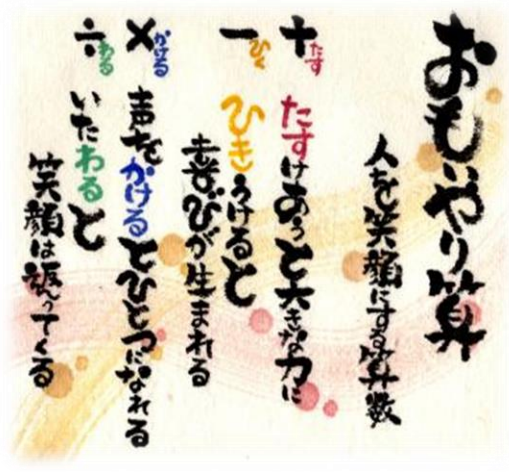 おもいやり算
人を笑顔にする算数
+たす たすけあうと大きな力に
-ひく ひきうけると
喜びが生まれる
×かける 声をかけるとひとつになれる
÷わる いたわると
笑顔は返ってくる